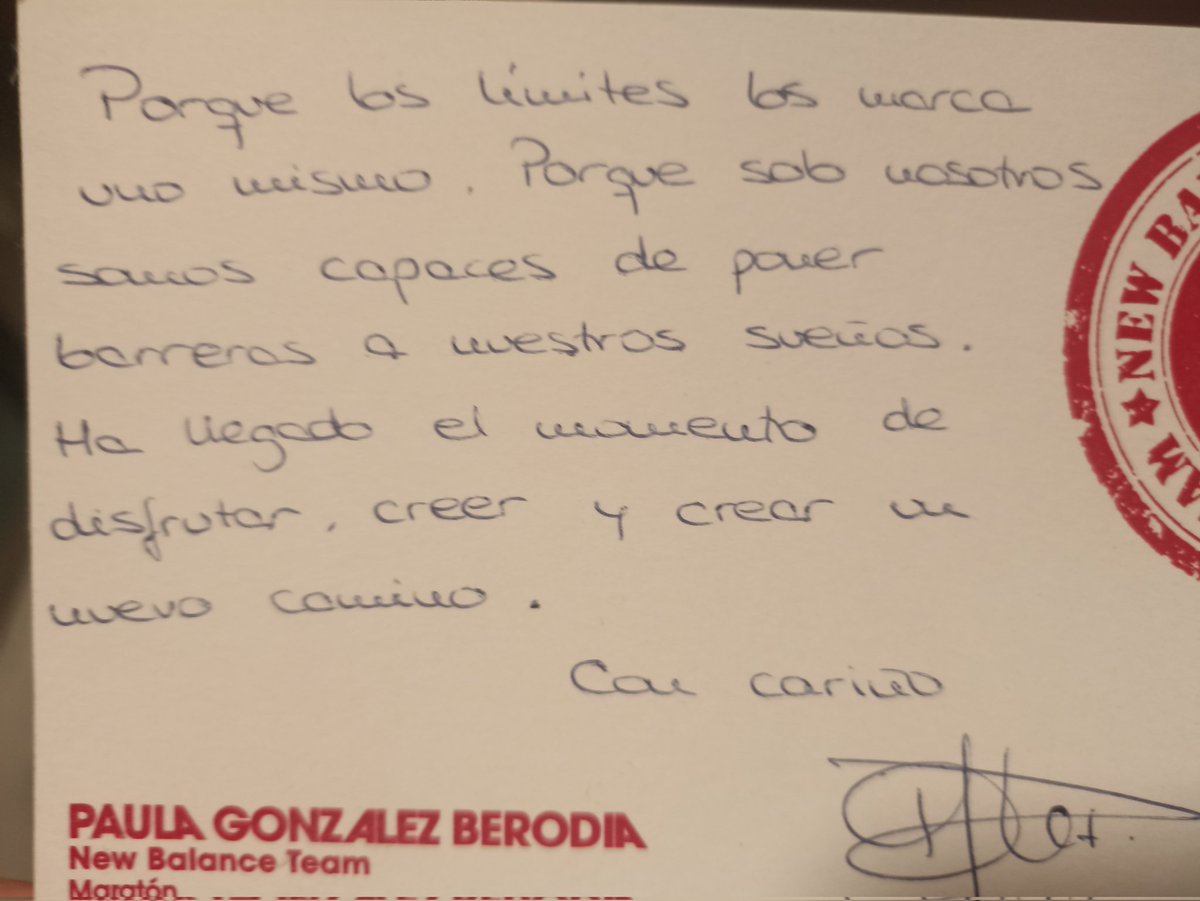 Porque los límites los marca
uno mismo. Porque solo nosotros
somos capaces de poner
barreras a nuestros sueños.
Ha llegado el momento de
disfrutar, creer y crear un
nuevo camino.
Con cariño
NEW BA
AM
PAULA GONZALEZ BERODIA
New Balance Team
Maratón